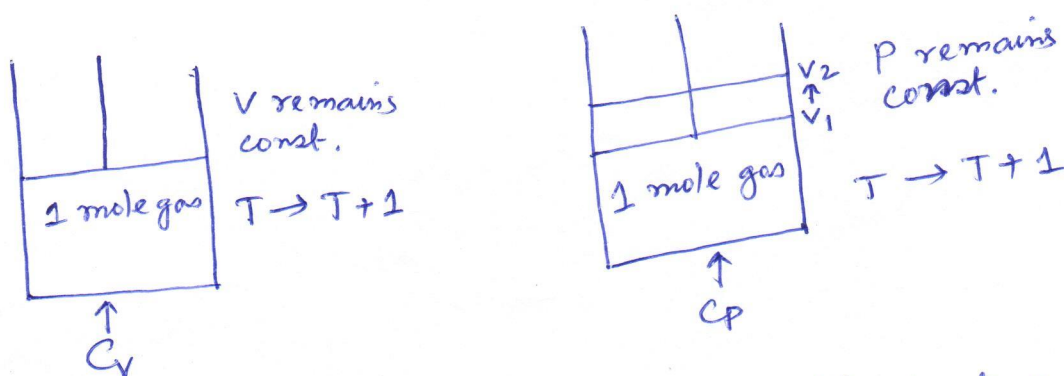 V remains
const.
1 mole gas
T → T + 1
↑
Cv
P remains
const.
V2
↑
V1
1 mole gas
T → T + 1
↑
CP